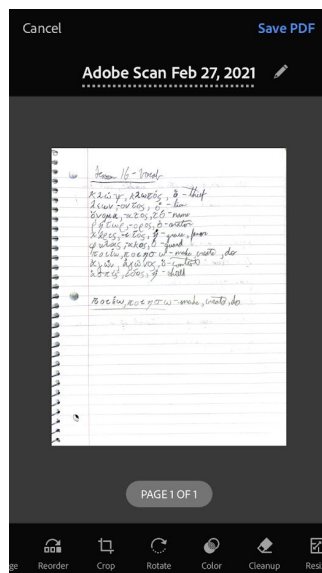 Cancel
Save PDF
Adobe Scan Feb 27, 2021
Lesson 16 - Vocab
κλώψ, κλωπός, ὁ - thief
λέων, -οντος, ὁ - lion
ὄνομα, -ατος, τό - name
ῥήτωρ, -ορος, ὁ - orator
χάρις, -ιτος, ἡ - grace, favor
φύλαξ, -ακος, ὁ - guard
ποιέω, ποιήσω - make, create, do
ἀγών, ἀγῶνος, ὁ - contest
ἀσπίς, -ίδος, ἡ - shield
ποιέω, ποιήσω - make, create, do
PAGE 1 OF 1
Reorder
Crop
Rotate
Color
Cleanup